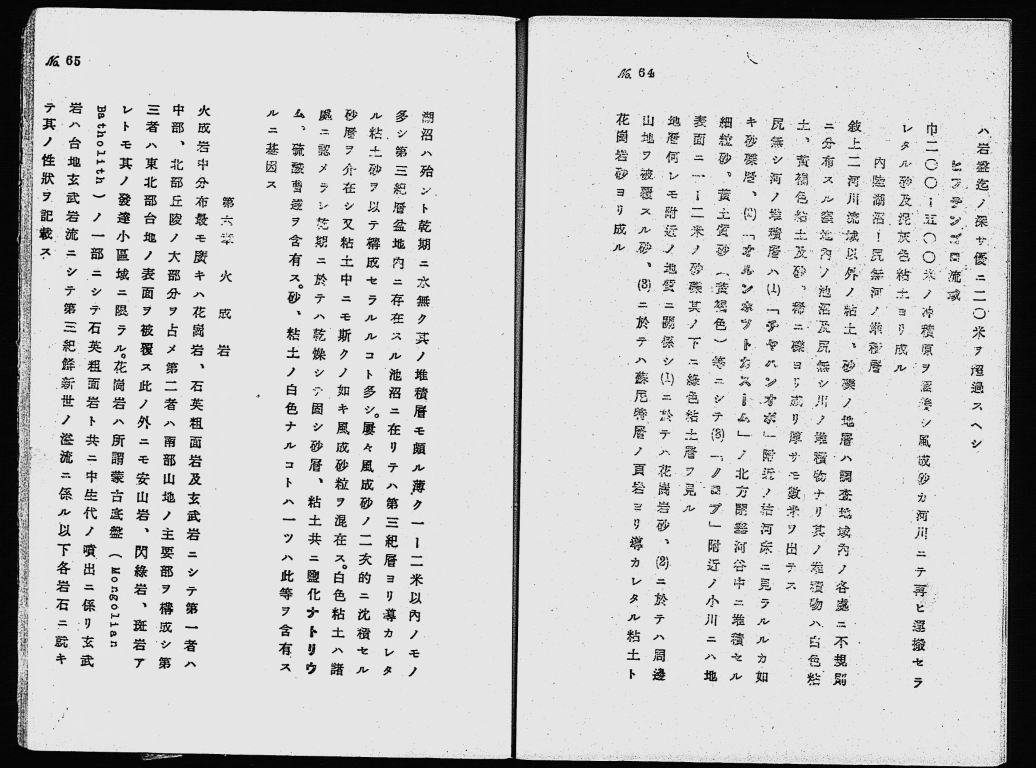 No. 64
ハ岩盤迄ノ深サ優ニ二〇米ヲ超過スヘシ
流域
巾二〇〇—五〇〇米ノ冲積原ヲ シ風成砂カ河川ニテ再ヒ運搬セラ
レタル砂及泥灰色粘土ヨリ成ル
內陸湖沼—尻無河ノ堆積層
敘上二河川流域以外ノ粘土、砂礫ノ地層ハ調査地域內ノ各處ニ不規則
ニ分布スル窪地內ノ池沼及尻無シ川ノ堆積物ナリ其ノ堆積物ハ白色粘
土、黃褐色粘土及砂、稀ニ礫ヨリ成リ厚サモ數米ヲ出テス
尻無シ河ノ堆積層ハ(1)「チャハンオボ」附近ノ枯河床ニ見ラルルカ如
キ砂礫層、(2)「 」ノ北方 河谷中ニ堆積セル
細粒砂、黃土質砂（黃褐色）等ニシテ(3)「 」附近ノ小川ニハ地
表面ニ一—二米ノ砂礫其ノ下ニ綠色粘土層ヲ見ル
地層何レモ附近ノ地質ニ關係シ(1)ニ於テハ花崗岩砂、(2)ニ於テハ周邊
山地ヲ被覆スル砂、(3)ニ於テハ蘇尼特層ノ頁岩ヨリ導カレタル粘土ト
花崗岩砂ヨリ成ル
No. 65
湖沼ハ殆ント乾期ニ水無ク其ノ堆積層モ頗ル薄ク一—二米以內ノモノ
多シ第三紀層盆地內ニ存在スル池沼ニ在リテハ第三紀層ヨリ導カレタ
ル粘土砂ヲ以テ構成セラルルコト多シ。屢々風成砂ノ二次的ニ沈積セル
砂層ヲ介在シ又粘土中ニモ斯クノ如キ風成砂粒ヲ混在ス。白色粘土ハ諸
處ニ認メラレ乾期ニ於テハ乾燥シテ固シ砂層、粘土共ニ鹽化ナトリウ
ム、硫酸曹達ヲ含有ス。砂、粘土ノ白色ナルコトハ一ツハ此等ヲ含有ス
ルニ基因ス
第六章　火成岩
火成岩中分布最モ廣キハ花崗岩、石英粗面岩及玄武岩ニシテ第一者ハ
中部、北部丘陵ノ大部分ヲ占メ第二者ハ南部山地ノ主要部ヲ構成シ第
三者ハ東北部台地ノ表面ヲ被覆ス此ノ外ニモ安山岩、閃綠岩、斑岩ア
レトモ其ノ發達小區域ニ限ラル。花崗岩ハ所謂蒙古底盤（Mongolian
Batholith）ノ一部ニシテ石英粗面岩ト共ニ中生代ノ噴出ニ係リ玄武
岩ハ台地玄武岩流ニシテ第三紀鮮新世ノ溢流ニ係ル以下各岩石ニ就キ
テ其ノ性狀ヲ記載ス